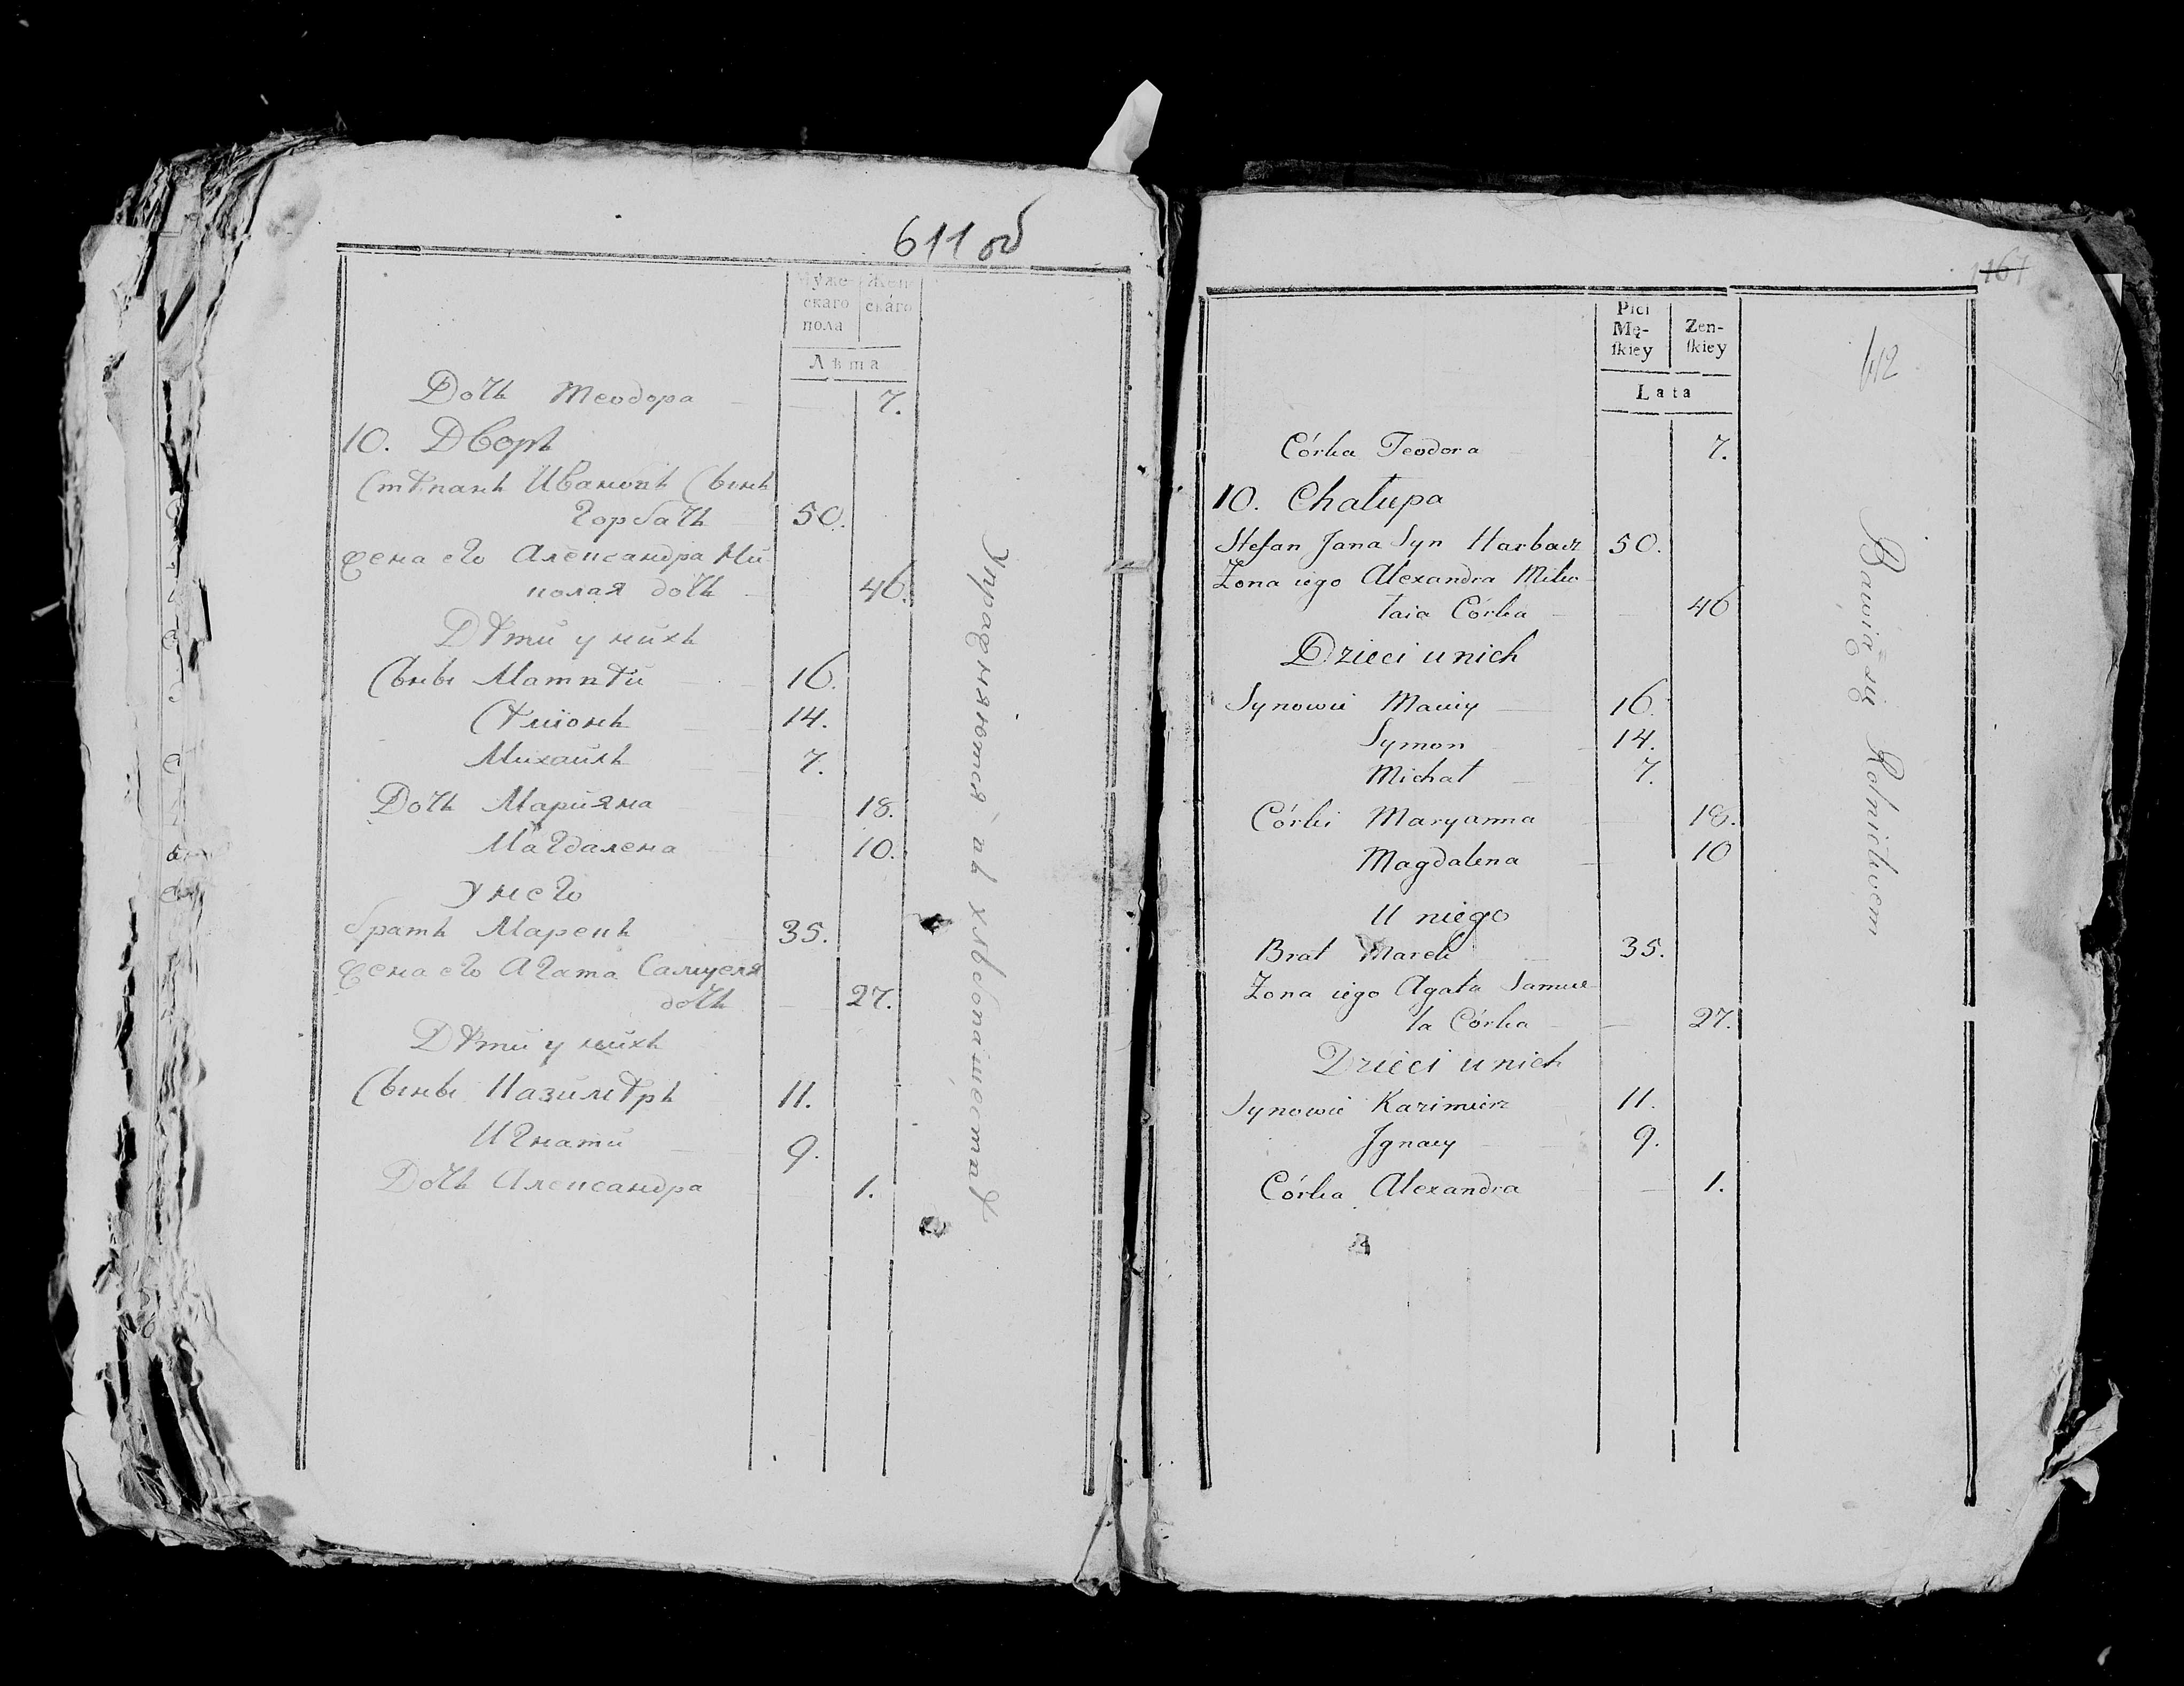 611 об
Муже-
скаго
пола
Жен-
скаго
Лѣта
Дочь Теодора 7.
10. Дворъ
Стѣпанъ Ивановъ Сынъ
Горбачъ 50.
Жена его Александра Ми
колая дочь 46.
Дѣти у нихъ
Сыны Матвѣй 16.
Сѣмїонъ 14.
Михайлъ 7.
Дочь Марйяна 18.
Магдалена 10.
У него
братъ Марекъ 35.
Жена его Агата Самуеля
дочь 27.
Дѣти у нихъ
Сыны Казимѣръ 11.
Игнатй 9.
Дочь Александра 1.
Упражняются въ хлѣбопашествѣ
161
612
Płci
Mę-
ſkiey
Zen-
ſkiey
Lata
Córka Teodora 7.
10. Chałupa
Stefan Jana Syn Harbacz 50.
Żona iego Alexandra Miko
łaia Córka 46
Dzieci u nich
Synowie Maciy 16.
Symon 14.
Michał 7.
Córki Maryanna 18.
Magdalena 10
U niego
Brat Marek 35.
Żona iego Agata Samue
la Córka 27.
Dzieci u nich
Synowie Kazimierz 11.
Jgnacy 9.
Córka Alexandra 1.
Bawią się Rolnictwem